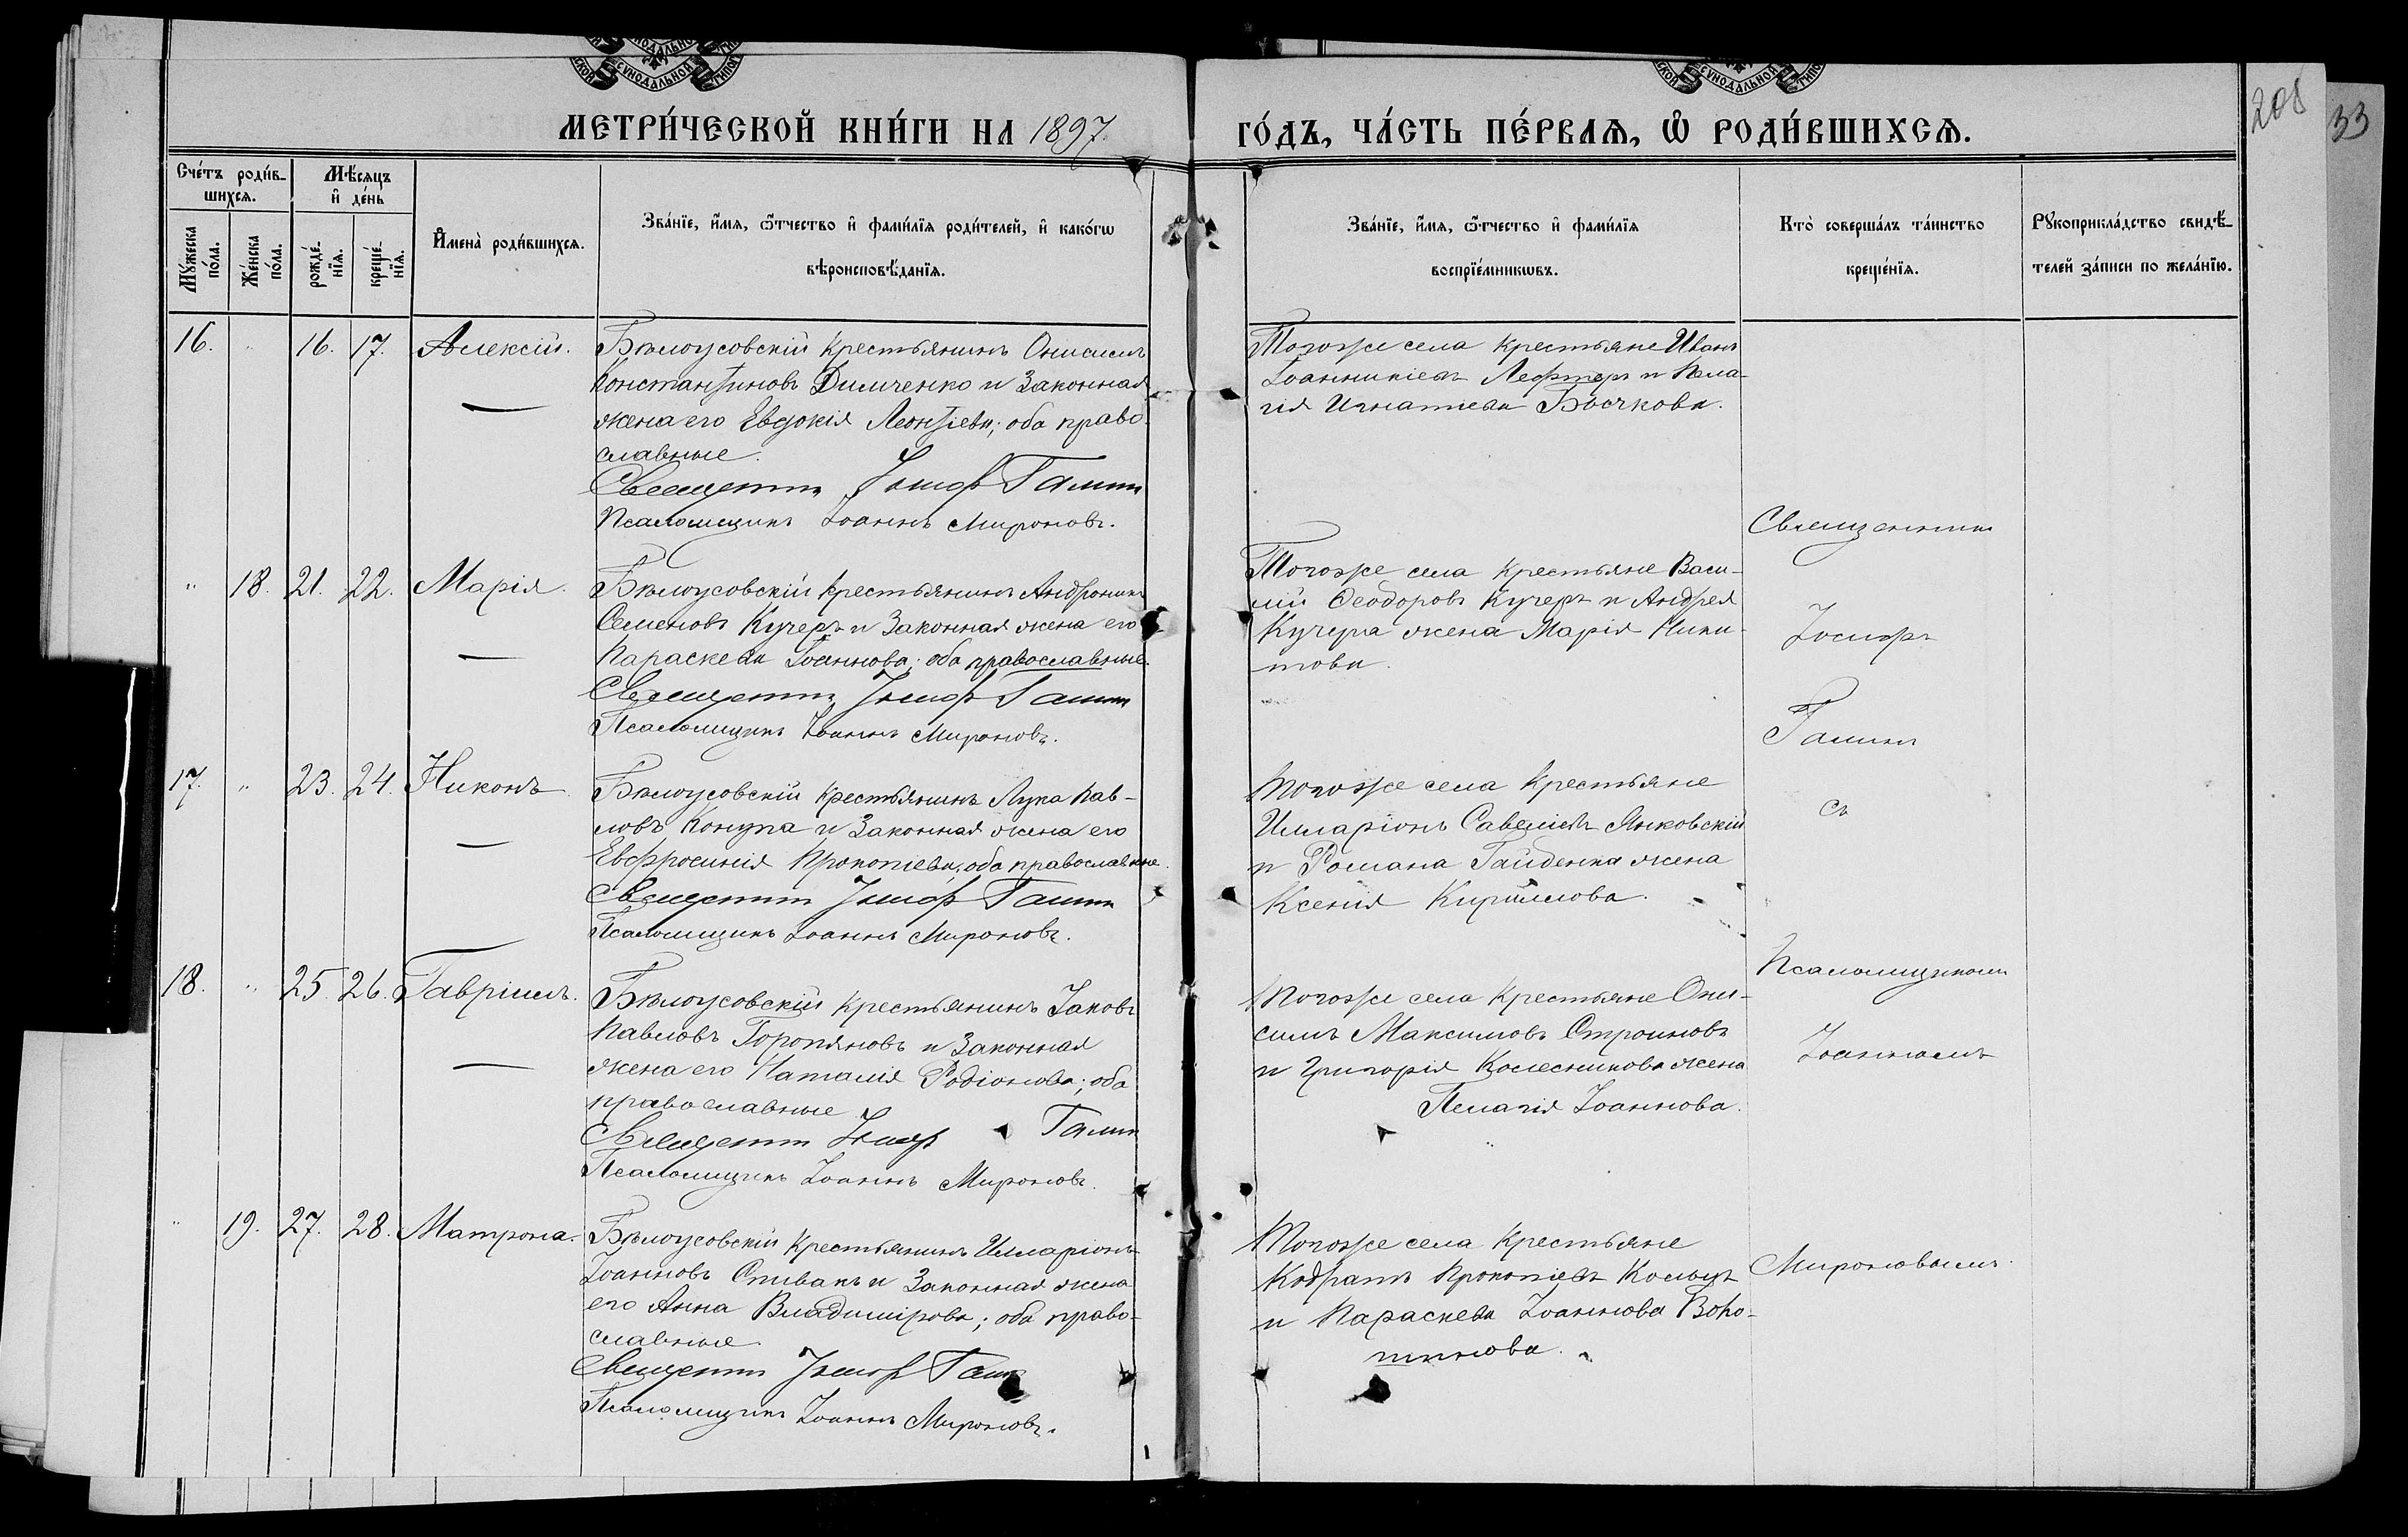 МЕТРИ́ЧЕСКОЙ КНИ́ГИ НА 1897 ГО́ДЪ, ЧА́СТЬ ПЕ́РВАѦ, Ѡ РОДИ́ВШИХСѦ.
208
33
Сче́тъ роди́в-
шихсѧ.
Мѣ́сяцъ
и҆ де́нь
Му́жеска
по́ла.
Же́нска
по́ла.
рожде́-
нїѧ.
креще́-
нїѧ.
И҆мена̀ роди́вшихсѧ.
Зва́нїе, и҆́мѧ, ѻ҆́тчество и҆ фами́лїѧ роди́телей, и҆ како́гѡ
вѣроисповѣ́данїѧ.
Зва́нїе, и҆́мѧ, ѻ҆́тчество и҆ фами́лїѧ
воспрїе́мникѡвъ.
Кто̀ соверша́лъ та́инство
креще́нїѧ.
Рꙋкоприкла́дство свидѣ́-
телей за́писи по жела́нїю.
16. " 16. 17. Алексій.
Бѣлоусовскій крестьянинъ Онисимъ
Константиновъ Димченко и законная
жена его Евдокія Леонтіева; оба право-
славные.
Священникъ Іосифъ Галин
Псаломщикъ Іоаннъ Мироновъ.
Тогоже села крестьяне Иванъ
Іоанникіевъ Лефтеръ и Пела-
гія Игнатіева Бычкова.
" 18. 21. 22. Марія.
Бѣлоусовскій крестьянинъ Андроникъ
Семеновъ Кучеръ и законная жена его
Параскева Іоаннова; оба православные.
Священникъ Іосифъ Галин
Псаломщикъ Іоаннъ Мироновъ.
Тогоже села крестьяне Васи-
лій Ѳеодоровъ Кучеръ и Андрея
Кучера жена Марія Ники-
това.
17. " 23. 24. Никонъ
Бѣлоусовскій крестьянинъ Лука Пав-
ловъ и законная жена его
Евфросинія Прокопіева; оба православные.
Священникъ Іосифъ Галин
Псаломщикъ Іоаннъ Мироновъ.
Тогоже села крестьяне
Илларіонъ Савеліевъ Янковскій
и Романа Гайденка жена
Ксенія Кириллова.
18. " 25. 26. Гавріилъ.
Бѣлоусовскій крестьянинъ Іаковъ
Павловъ Горопяновъ и законная
жена его Наталія Родіонова; оба
православные
Священникъ Іосифъ Галин
Псаломщикъ Іоаннъ Мироновъ.
Тогоже села крестьяне Они-
симъ Максимовъ Строиновъ
и Григорія Колесникова жена
Пелагія Іоаннова.
" 19. 27. 28. Матрона.
Бѣлоусовскій крестьянинъ Илларіонъ
Іоанновъ Спивакъ и законная жена
его Анна Владимірова; оба право-
славные
Священникъ Іосифъ Галин
Псаломщикъ Іоаннъ Мироновъ.
Тогоже села крестьяне
Кодратъ Прокопіевъ
и Параскева Іоаннова
Священникъ
Іосифъ
Галинъ
съ
Псаломщикомъ
Іоанномъ
Мироновымъ.